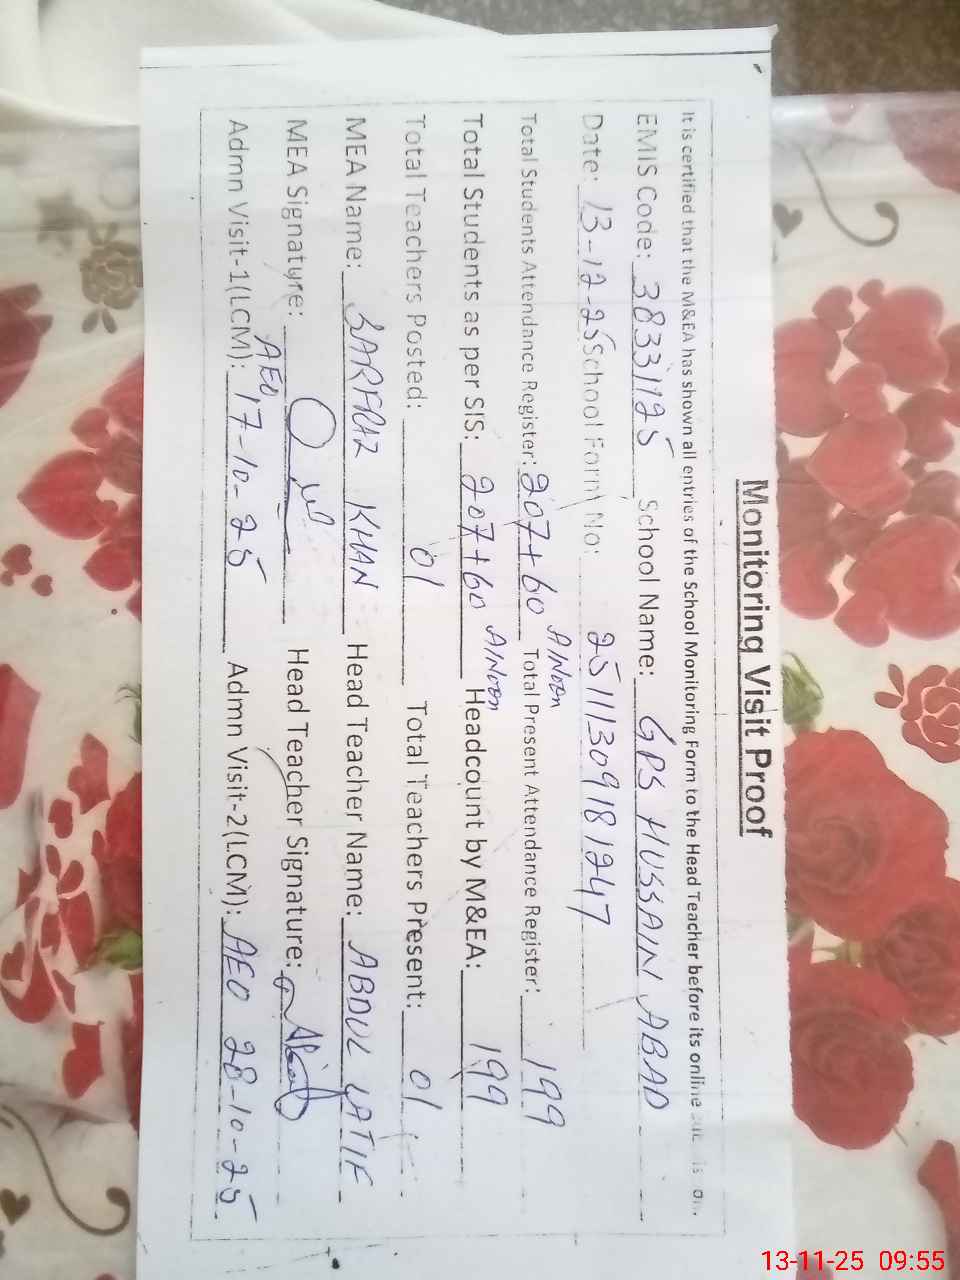 Monitoring Visit Proof
It is certified that the M&EA has shown all entries of the School Monitoring Form to the Head Teacher before its online
EMIS Code: 38331125 School Name: GPS HUSSAIN ABAD
Date: 13-12-25 School Form No: 2511130918 1247
Total Students Attendance Register: 207+60 Total Present Attendance Register: 199
Total Students as per SIS: 207+60 Headcount by M&EA: 199
Total Teachers Posted: 01 Total Teachers Present: 01
MEA Name: SARFRAZ KHAN Head Teacher Name: ABDUL LATIF
MEA Signature: Head Teacher Signature:
Admn Visit-1(LCM): AEO 17-10-25 Admn Visit-2(LCM): AEO 28-10-25
13-11-25 09:55